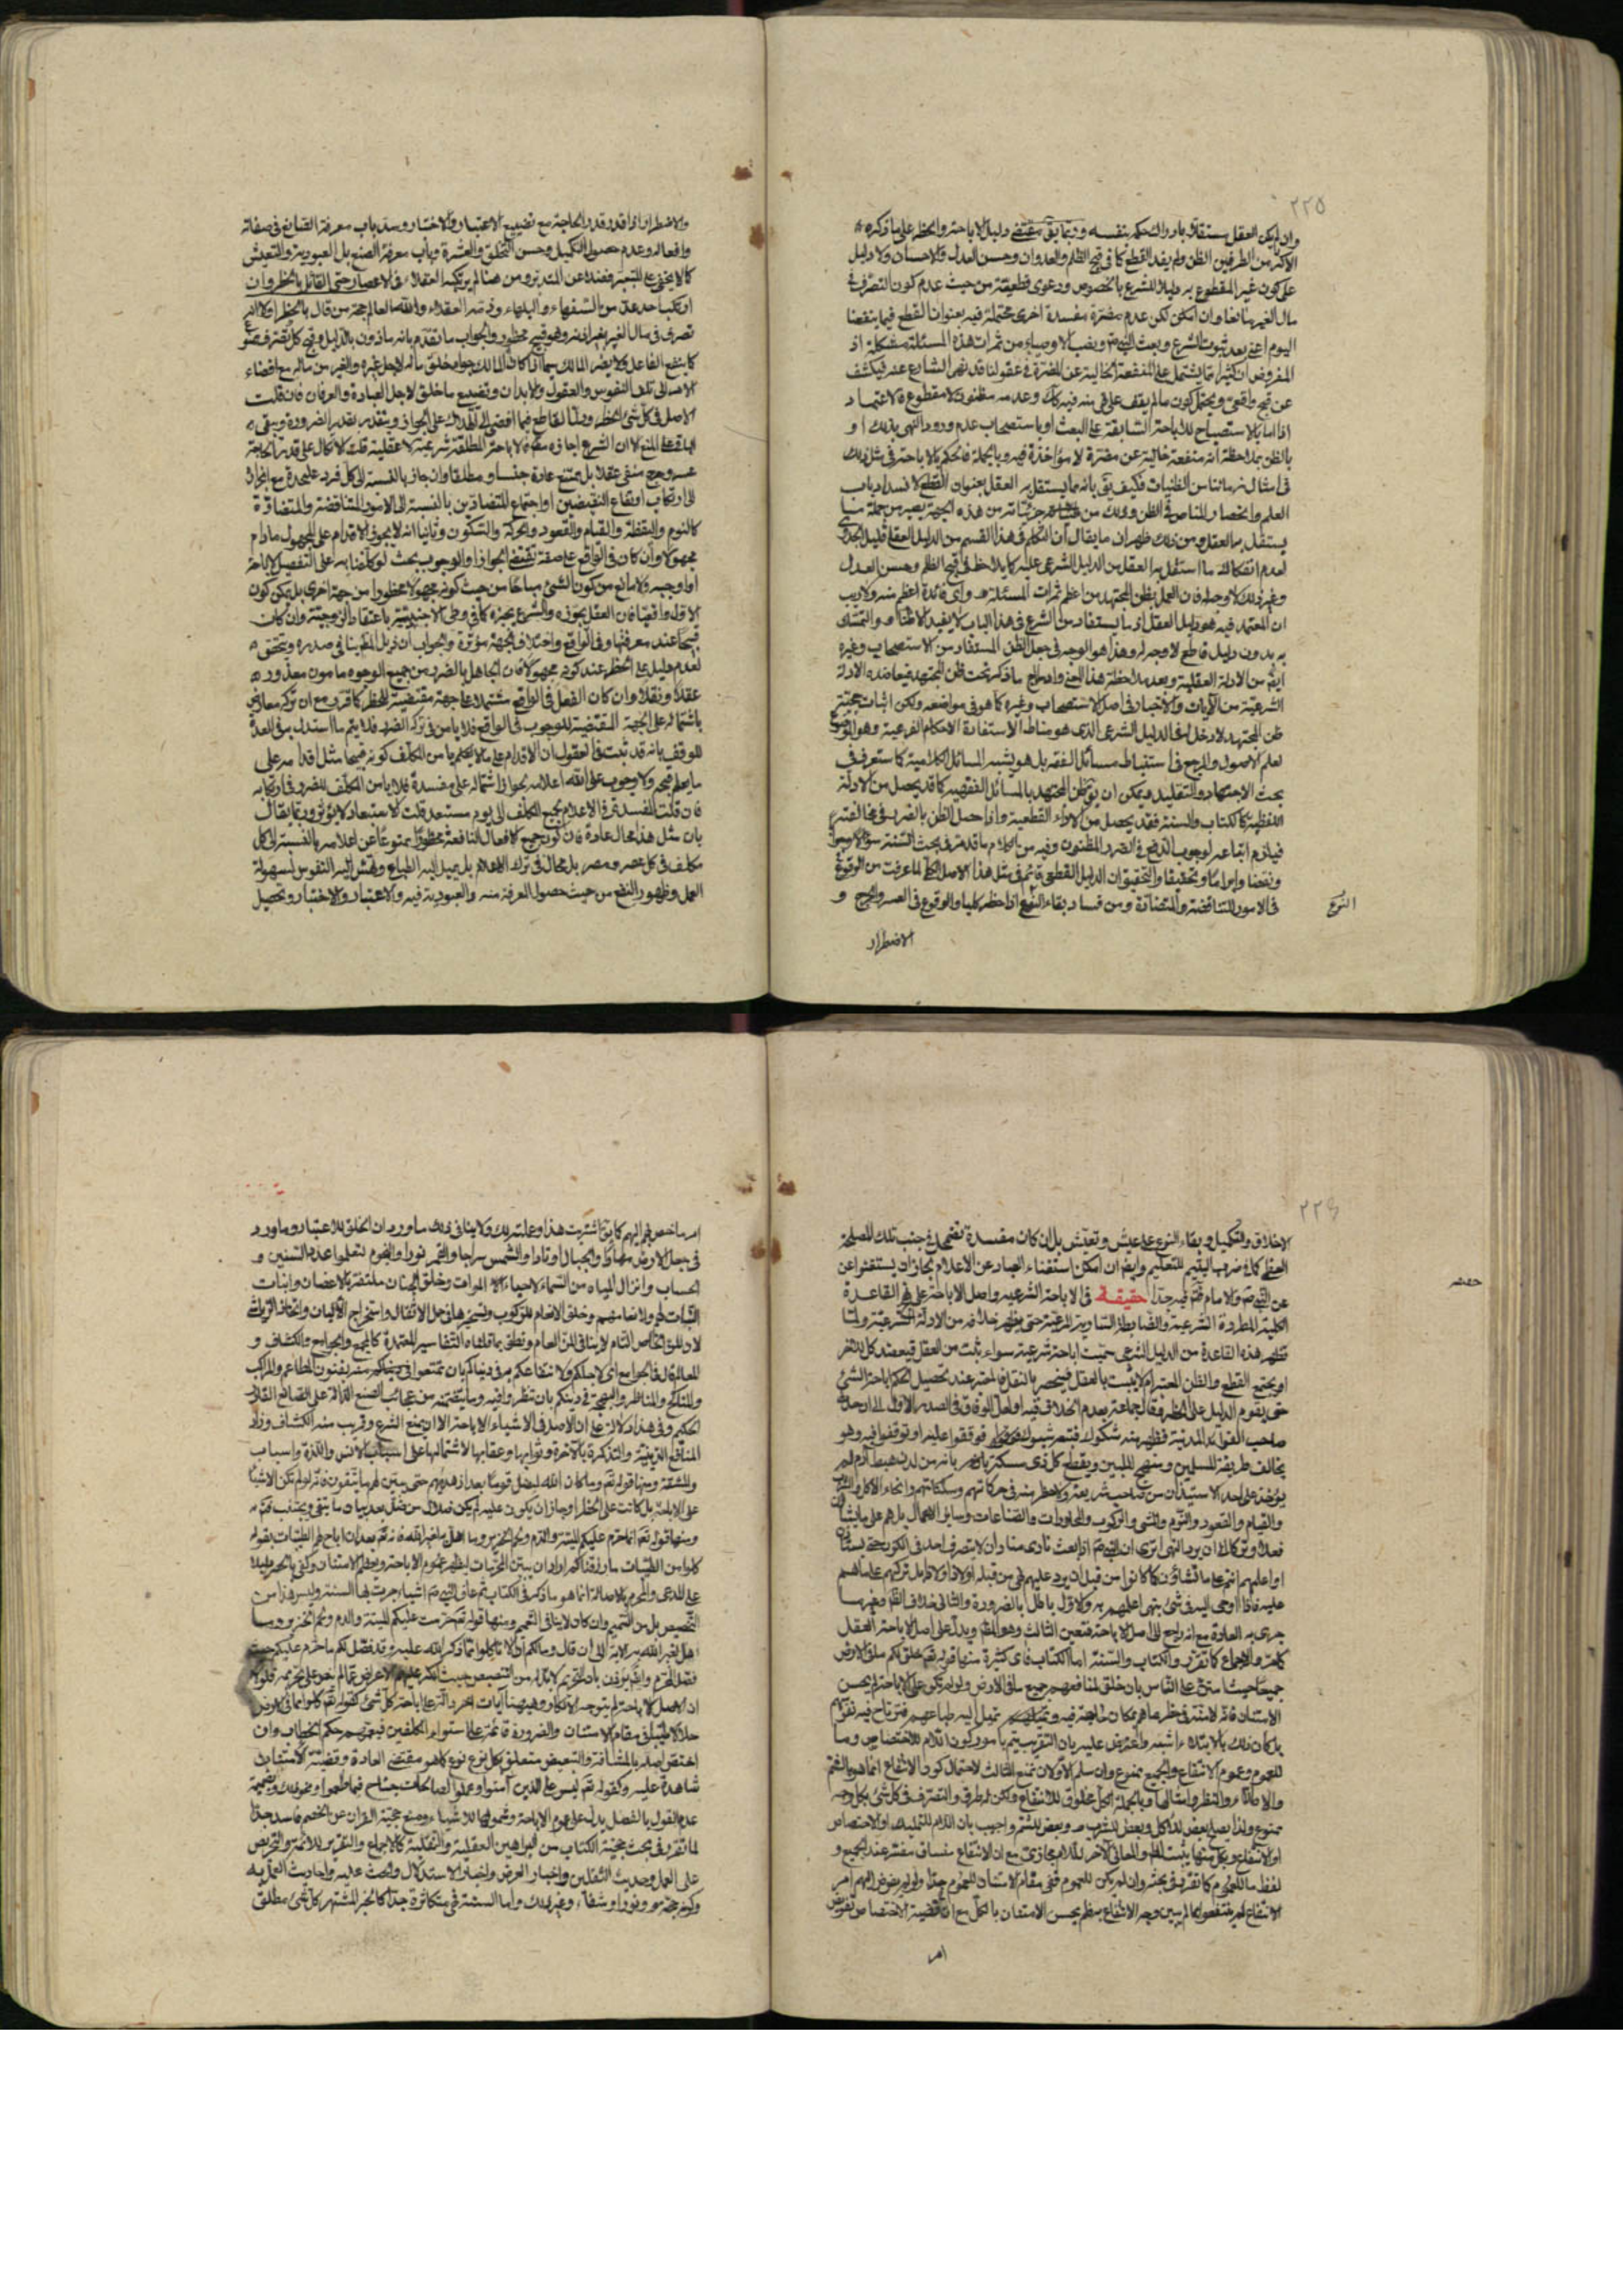 ٢٢٥
وان لم يكن العقل مستقلا بادراك حكمه بنفسه وربما يقى دليل الاباحة والحظر على ما ذكره
الاكثر من الطرفين الظن ولم يفد القطع كما فى قبح الظلم والعدوان وحسن العدل والاحسان ولا دليل
على كون غير المقطوع به دليلا للشرع بالخصوص ودعوى قطعيته من حيث عدم كون التصرف فى
مال الغير مانعا وان امكن لكن عدم مفسدة اخرى محتملة فيه بعنوان القطع فيما ينفعنا
اليوم اعنى بعد ثبوت الشرع وبعث النبى ونصب الاوصياء من ثمرات هذه المسئلة مشكلة اذ
المفروض ان كثيرا مما يشتمل على المنفعة الخالية عن المضرة فى عقولنا قد نهى الشارع عنه فيكشف
عن قبح واقعى ويحتمل كون ما لم يقف على نهيه فيه كك وعدمه مظنون لا مقطوع والاعتماد
اذا اما بالاستصحاب للاباحة السابقة على البعث او باستصحاب عدم ورود النهى بذلك او
بالظن بملاحظة انه منفعة خالية عن مضرة لا مؤاخذة فيه وبالجملة فالحكم بالاباحة فى مثل ذلك
فى امثال زماننا من الظنيات فكيف يقى بانه مما يستقل به العقل بعنوان القطع لانسداد باب
العلم وانحصار المناص فى الظن وذلك من جزئياته من هذه الجهة يصير من جملة ما
يستقل به العقل ومن ذلك ظهر ان ما يقال ان التكلم فى هذا القسم من الدليل العقلى قليل الجدوى
لعدم انفكاك ما استقل به العقل من الدليل الشرعى عليه كما يلاحظ فى قبح الظلم وحسن العدل
وغير ذلك لا وجه له فان العمل بظن المجتهد من اعظم ثمرات المسئلة واى فائدة اعظم منه ولا ريب
ان المعتمد فيه هو دليل العقل اذ ما يستفاد من الشرع فى هذا الباب لا يفيد الا ظنا والتمسك
به بدون دليل قاطع لا وجه له وهذا هو الوجه فى جعل الظن المستفاد من الاستصحاب وغيره
ايضا من الادلة العقلية وبعد ملاحظة هذا المعنى وادراج ما ذكر تحت ظن المجتهد فيعاضده الادلة
الشرعية من الآيات والاخبار فى اصل الاستصحاب وغيره كما هو فى مواضعه ولكن اثبات حجية
ظن المجتهد لا دخل له فى الدليل الشرعى الذى هو مناط الاستفادة الاحكام الفرعية وهو الموضوع
لعلم الاصول والمرجع فى استنباط مسائل الفقه بل هو يشبه المسائل الكلامية كما ستعرف فى
بحث الاجتهاد والتقليد فيمكن ان يقى ظن المجتهد بالمسائل الفقهية كما قد يحصل من الادلة
اللفظية كالكتاب والسنة فقد يحصل من الادلة القطعية واذا حصل الظن بالضرر فى مخالفته
فيلزم اتباعه لوجوب الدفع فى الضرر المظنون وفيه من الكلام ما قدمته فى بحث السنة سؤالا وجوابا
ونقضا وابراما وتحقيقا والتحقيق ان الدليل القطعى قائم فى مثل هذا الاصل الكلى لما عرفت من الوقوع
فى الامور المتناقضة والمتضادة ومن فساد بقاء النوع اذا حظر كليا والوقوع فى العسر والحرج و
النوع
الاضطرار
والاضطرار اذا قدر قدر الحاجة مع تضييع الاعتبار والاختبار وسد باب معرفة الصانع فى صفاته
وافعاله وعدم حصول التكميل وحسن التخلق والعشرة وباب معرفة الصنع بل العبودية والتعيش
كما لا يخفى على المتبصر فضلا عن المتدبر ومن هنا لم يرتكبه العقلاء فى الاعصار حتى القائل بالحظر وان
ارتكب احد عد من السفهاء والبلهاء وذمته العقلاء والله العالم حجة من قال بالحظر اولا انه
تصرف فى مال الغير بغير اذنه وهو قبيح محظور والجواب ما تقدم بانه ماذون بالدليل وقبح كل تصرف ممنوع
كما ينتفع الفاعل ولا يضر المالك سيما اذا كان المالك جوادا خلق ماله لاجل غيره والغير من ماله مع افضاء
الامر الى تلف النفوس والعقول والابدان وتضييع ما خلق لاجل العبادة والعرفان فان قلت
الاصل فى كل شئ الحظر ودلنا القاطع فيما افضى الى الهلاك على الجواز ويتقدر بقدر الضرورة ويبقى
الباقى على المنع لان الشرع اجازه فالاباحة المطلقة شرعية لا عقلية قلت الاتكال على قدر الحاجة
عسر وحرج منفى عقلا بل ممتنع عادة جنسا ومطلقا وان جاز بالنسبة الى كل فرد على حدة مع انجراره
الى ارتكاب ارتفاع النقيضين او اجتماع المتضادين بالنسبة الى الامور المتناقضة والمتضادة
كالنوم واليقظة والقيام والقعود والحركة والسكون وثانيا انه لا يجوز الاقدام على المجهول مادام
مجهولا وان كان فى الواقع على صفة تقتضى الجواز او الوجوب بحث لو كلفنا به على التفصيل لاباحه
او اوجبه ولا مانع من كون الشئ مباحا من حيث كونه مجهولا محظورا من جهة اخرى بل يمكن كون
الاول واقعيا فان العقل يجوزه والشرع يجيزه كما فى وطى الاجنبية باعتقاد الزوجية وان كان
قبيحا عند معرفتها وفى الواقع واختلاف الجهة مؤثرة والجواب ان نزيل المطبنا فى صدره ويتحقق
لعدم دليل على الحظر عند كونه مجهولا فان الجاهل بالضرر من جميع الوجوه مامون معذور
عقلا ونقلا وان كان الفعل فى الواقع مشتملا على جهة مقتضية للحظر كما قرر مع ان تركه معارض
باشتماله على الجهة المقتضية للوجوب فى الواقع فلا باس فى تركه الضرر فلا يتم ما استدل به فى العدة
للوقف بانه قد ثبت فى العقول ان الاقدام على ما لا يعلم يامن المكلف كونه قبيحا مثل اقدامه على
ما يعلم قبحه ولا وجوب على الله اعلامه بجواز اشتماله على مفسدة فلا يامن المكلف للضرر فى ارتكابه
فان قلت المفسدة فى الاعلام لجميع المكلف الى يوم مستبعد قلت الاستبعاد لا يؤثر وربما يقال
بان مثل هذا محال عادة فان كون جميع الافعال النافعة محظورا ممنوعا عن اعلامه بالنسبة الى كل
مكلف فى كل عصر ومصر بل محال فى ترك الاعلام بل يميل اليه الطبايع وتهش اليه النفوس لسهولة
العمل وظهور النفع من حيث حصول المعرفة منه والعبودية فيه والاعتبار والاختبار وتحصيل
٢٢٦
الاخلاق والتكميل وبقاء النوع على عيش وتعيش بل ان كان مفسدة تضمحل فى جنب تلك المصلحة
العظمى كما فى ضرب اليتيم للتعليم وايضا ان امكن استغناء العباد عن الاعلام لجاز ان يستغنوا عن
عن النبى والامام فتم فيه جدا حقيقة فى الاباحة الشرعية واصل الاباحة على هى القاعدة
الكلية المطردة الشرعية والضابطة السماوية المرعية حتى يظهر خلافه من الادلة الشرعية ولما
تظهر هذه القاعدة من الدليل الشرعى سميت اباحة شرعية سواء ثبت من العقل فيعضد كل للآخر
او يجتمع القطع والظن المعتبر ام لا يثبت بالعقل فينحصر بالنقل فالمعتبر عند تحصيل الحكم اباحة الشئ
حتى يقوم الدليل على الحظر فقال جماعة بعدم الخلاف فيه ولعل الوفاق فى الصدر الاول الى ان حدث
صاحب الفوائد المدنية فظهر منه شكوك فتبعه فوقفوا عليه او توقفوا فيه وهو
يخالف طريقة المسلمين ومنهج المليين ويقطع كل ذى مسكة بانه من لدن هبط آدم لم
يؤخذ على احد الاستيذان من صاحب شريعة ولا حظر منه فى حركاتهم وسكناتهم وانحاء الاكل والشرب
والقيام والقعود والنوم والمشى والركوب والمحاورات والصناعات وساير الاعمال بل هم على ما يشاؤن
فعلا وتركا الى ان يرد النهى اترى ان النبى اذا بعث نادى مناد ان لا يتصرف احد فى الكون حتى يستاذن
او اعلمهم انتم على ما تشاؤن كما كانوا من قبل ان يرد عليهم نهى من قبله او لا ذا ولا ذا بل تركهم على ما هم
عليه فاذا اوحى اليه فى شئ بنهى اعلمهم به والاول باطل بالضرورة والثانى خلاف الظاهر
جرى به العادة مع انه راجع الى اصل الاباحة فتعين الثالث وهو المطلوب ويدل على اصل الاباحة العقل
كما مر والاجماع كما تقرر والكتاب والسنة اما الكتاب فآى كثيرة منها قوله تعالى خلق لكم ما فى الارض
جميعا حيث امتن على الناس بان خلق لمنافعهم جميع ما فى الارض ولو لم تكن على الاباحة لم يحسن
الامتنان فانه لا منة فى حظر ما هم بمكان حاجة فيه وتميل اليه طباعهم فترتاح فيه نفوسهم
بل كان ذلك بالابتلاء اشبه واعترض عليه بان التقريب يتم بامور كون اللام للاختصاص وما
للعموم وعموم الانتفاع والجميع ممنوع وان سلم الاولان نمنع الثالث لاحتمال كون الانتفاع انما هو بالشم
والاصطلاء والنظر وامثالها وبالجملة الكل مخلوق للانتفاع ولكن له طرق والتصرف فى كل شئ بكل وجه
ممنوع ولذا يصلح بعض للاكل وبعض للشرب وبعض للشم واجيب بان اللام للتمليك او الاختصاص
او الانتفاع وبكل منها يثبت المط والمعانى الآخر للام مجازى مع ان الانتفاع مفسر عند الجميع و
لفظ ما للعموم كما تقرر فى بحثه وان لم يكن للعموم ففى مقام الامتنان للعموم جدا ولو لم يفوض اليهم امر
الانتفاع لم ينتفعوا بما لم يبين وجه الانتفاع بنظم يحسن الامتنان بالكل مع ان قضية الاختصاص تفويض
امر
امر ما خص بهم اليهم كما يقى اشتريت هذا وعملته لك ولا ينافى ذلك ما ورد ان الخلق للاعتبار وما ورد
فى جعل الارض مهادا والجبال اوتادا والشمس سراجا والقمر نورا والنجوم لتعلموا عدد السنين و
الحساب وانزال المياه من السماء لاحياء الموات وخلق الجنان ملتفة الاغصان وانبات
النبات لهم ولانعامهم وخلق الانعام للركوب وتسخيرها فى حمل الاثقال واستخراج الالبان واتخاذ
لان للمن الخاص التام لا ينافى المن العام ونطق بما قلناه التفاسير المعتمدة كالمجمع والجوامع والكشاف و
المعالم قال فى الجوامع اى لاجلكم ولانتفاعكم به فى دنياكم بان تتمتعوا منه بفنون المطاعم والمراكب
والمناكح والمناظر البهيجة وفى دينكم بان تنظروا فيه وما يتضمنه من عجائب الصنع الدالة على الصانع القادر
الحكيم وفى هذا دلالة على ان الاصل فى الاشياء الاباحة الا ان يمنع الشرع وقريب منه الكشاف وزاد
المنافع الدينية والتذكرة بالآخرة وثوابها وعقابها لاشتمالها على اسباب الانس واللذة واسباب
والمشقة ومنها قوله تعالى وما كان الله ليضل قوما بعد اذ هديهم حتى يبين لهم ما يتقون فانه لو لم تكن الاشياء
على الاباحة بل كانت على الحظر لجاز ان يكون عليه لم يكن ضلال من ضل بعد بيان ما يتقى ويجتنب فتم
ومنها قوله تعالى انما حرم عليكم الميتة والدم ولحم الخنزير وما اهل به لغير الله فانه تعالى بعد ان اباح لهم الطيبات بقوله
كلوا من الطيبات ما رزقناكم اراد ان يبين المحرمات ليظهر عموم الاباحة ويعظم الامتنان وكفى بالحصر دليلا
على المدعى والمحرم بالاصالة انما هو ما ذكر فى الكتاب ثم عاف النبى اشياء جرت بها السنة وليس هذا من
التخصيص بل من التتميم وان كان لا ينافى التعميم ومنها قوله تعالى حرمت عليكم الميتة والدم ولحم الخنزير وما
اهل لغير الله به الآية الى ان قال وما لكم ان لا تاكلوا مما ذكر اسم الله عليه وقد فصل لكم ما حرم عليكم حيث
اذ الاصل الاباحة لم يتوجه الانكار وهيهنا آيات اخر دالة على اباحة كل شئ كقوله تعالى كلوا مما فى الارض
حلالا طيبا فى مقام الامتنان والضرورة قائمة على استواء المكلفين فيعمهم حكم الخطاب وان
اختص اصله بالمشافهة والتبعيض متعلق بكل نوع نوع كما هو مقتضى العادة وقضية الامتنان
شاهدة عليه وكقوله تعالى ليس على الذين آمنوا وعملوا الصالحات جناح فيما طعموا ونحو ذلك وبضميمة
عدم القول بالفصل يدل على عموم الاباحة وشمولها للاشياء ومنع حجية القران عن الخصم فاسد جدا
لما تقرر فى بحث حجية الكتاب من البراهين العقلية والنقلية كالاجماع والتقرير للائمة والتحريص
على العمل وحديث الثقلين واخبار العرض واخبار الاستدلال والحث عليه واحاديث التمسك به
وكونه حجة ونورا وشفاء وغير ذلك واما السنة فهى متكاثرة جدا كالخبر المشتهر كل شئ مطلق